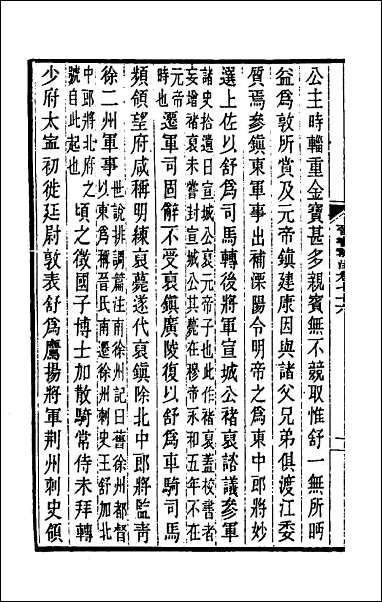 公主時輜重金寶甚多親賓無不競取惟舒一無所眄
益爲敦所賞及元帝鎮建康因與諸父兄弟俱渡江委
質焉參鎮東軍事出補溧陽令明帝之爲東中郎將妙
選上佐以舒爲司馬轉後將軍宣城公褚裒諮議參軍
諸史拾遺曰宣城公裒元帝子也此作褚裒蓋校書者
妄增褚裒未嘗封宣城公其薨在穆帝永和五年不在
元帝
時也
遷軍司固辭不受裒鎮廣陵復以舒爲車騎司馬
頻領望府咸稱明練裒薨遂代裒鎮除北中郎將監青
徐二州軍事
世說排調篇注南徐州記曰舊徐州都督
以東爲稱晉氏南遷徐州刺史王舒加北
中郎將北府之
號自此起也
頃之徵國子博士加散騎常侍未拜轉
少府太寧初徙廷尉敦表舒爲鷹揚將軍荊州刺史領